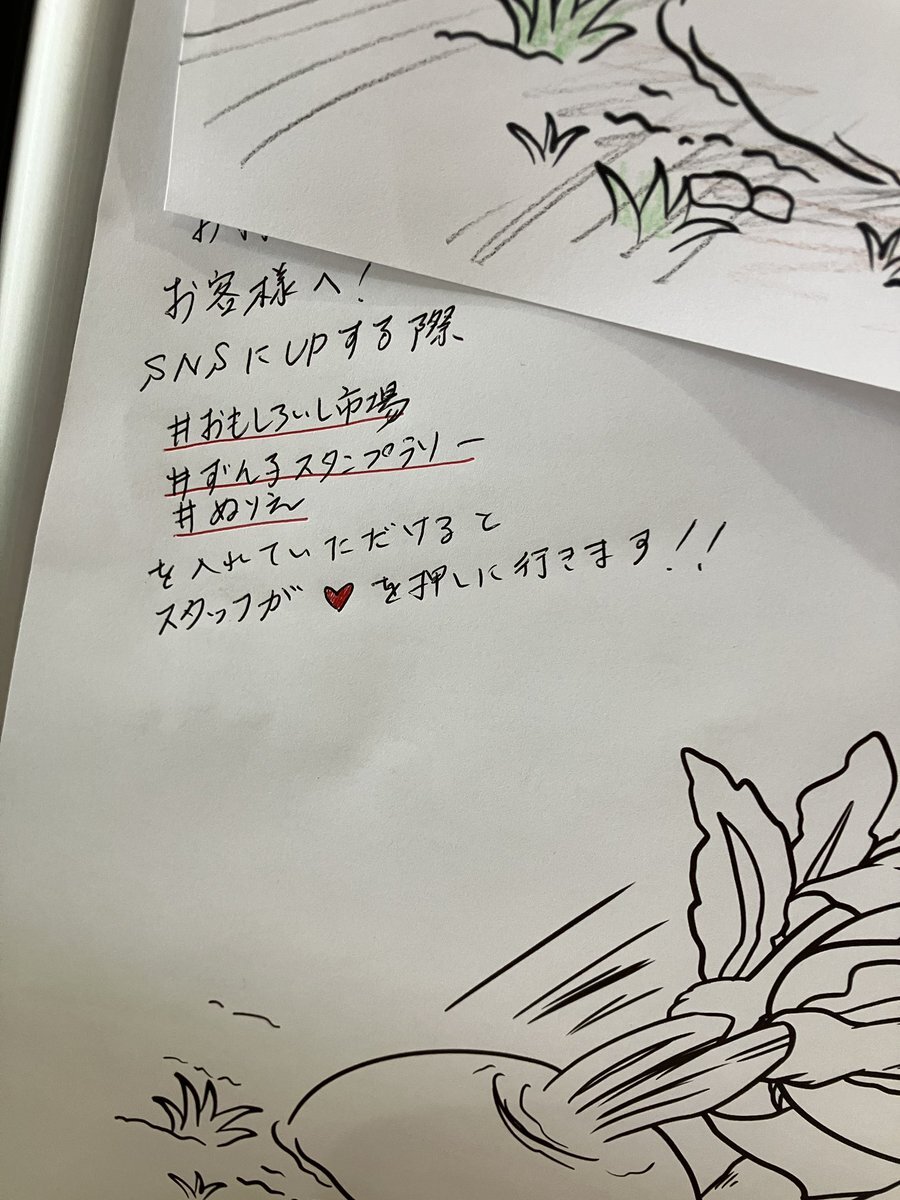 お客様へ!
SNSにUPする際
#おもしろいし市場
#ずん子スタンプラリー
#ぬりえ
を入れていただけると
スタッフが♥を押しに行きます!!